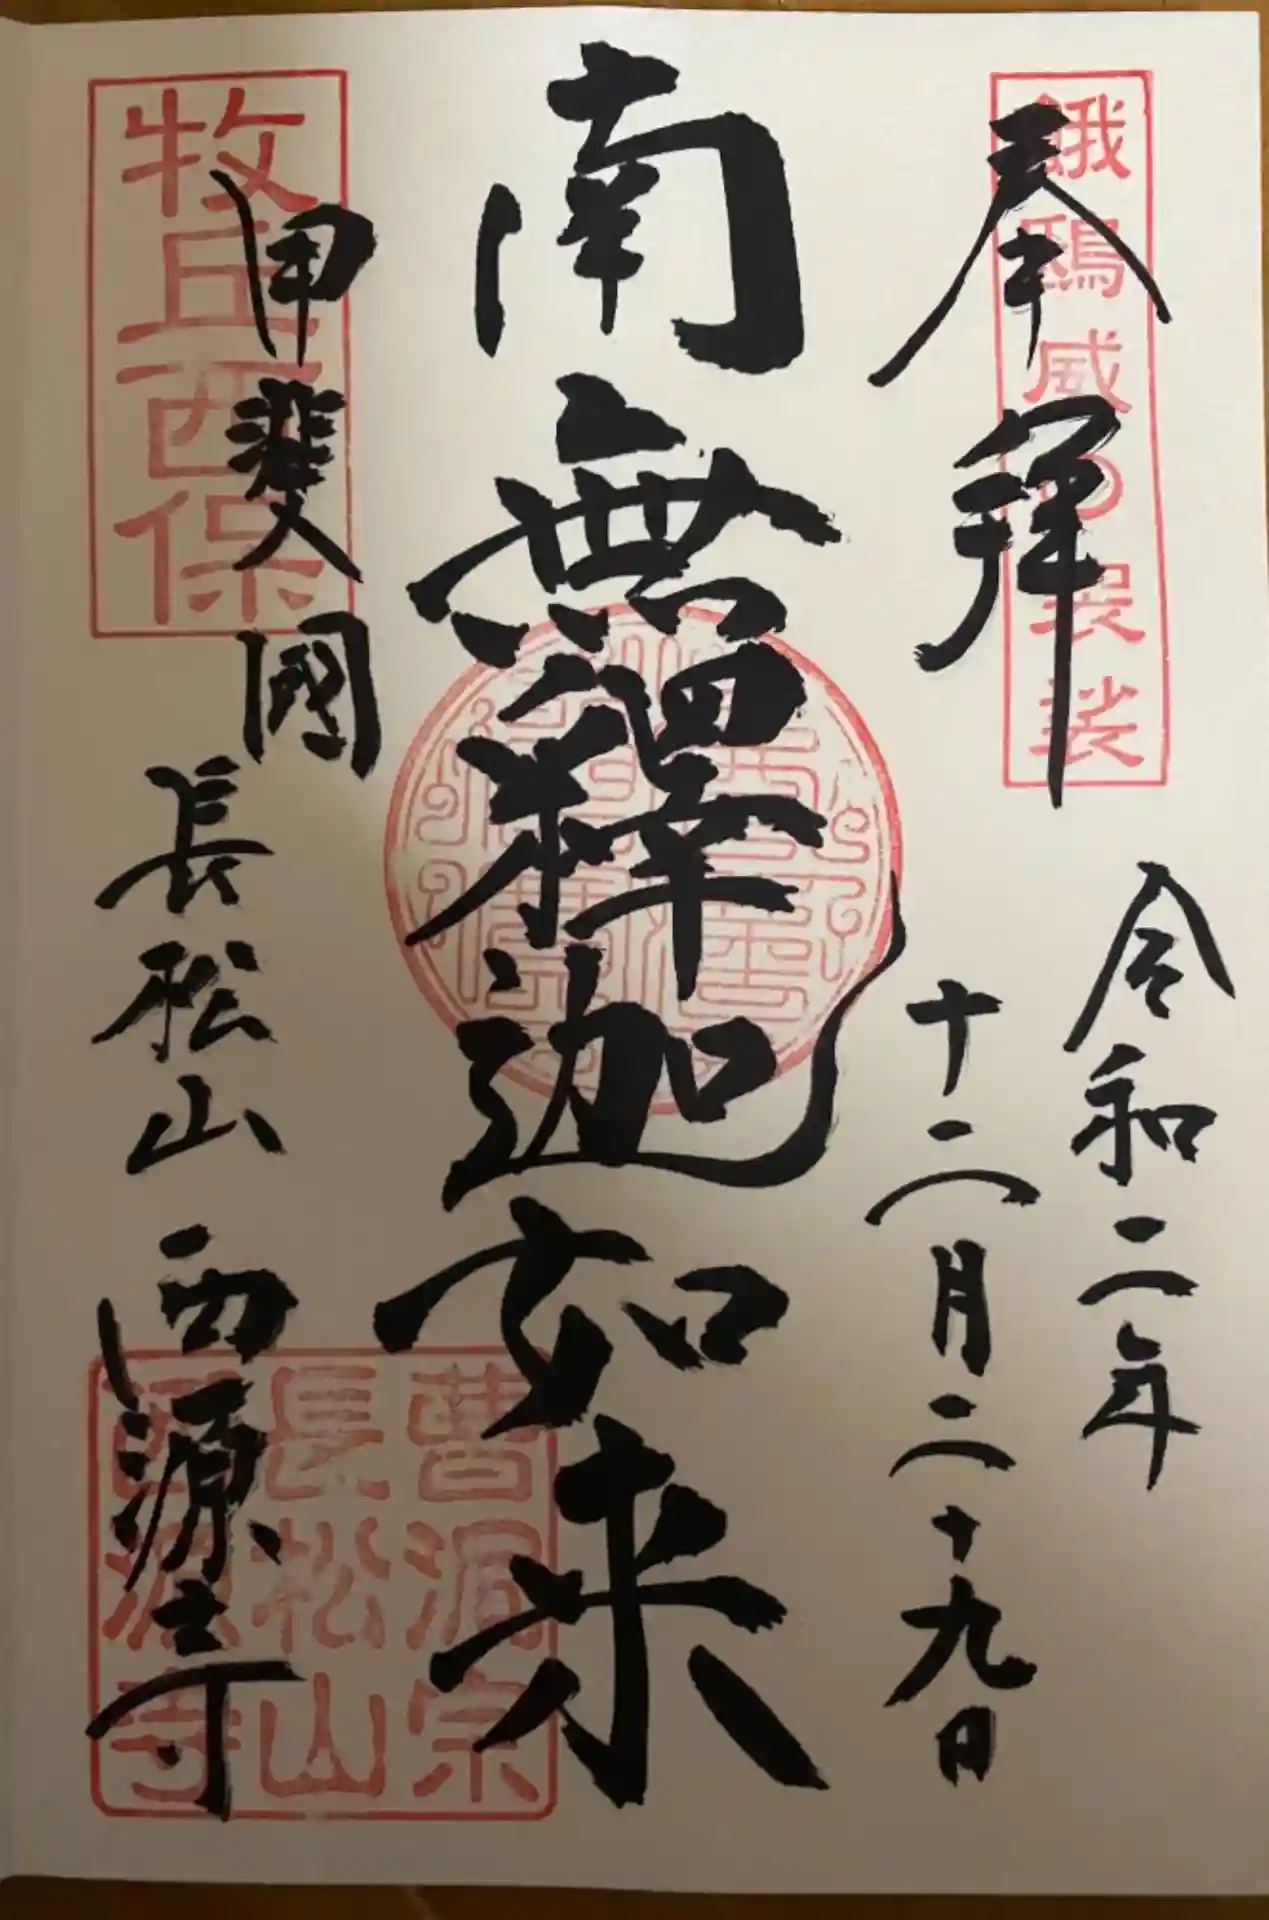 奉拝
令和二年
十二月二十九日
南無釋迦如来
甲斐國
長松山 西源寺
牧丘西保
曹洞宗
長松山
西源寺